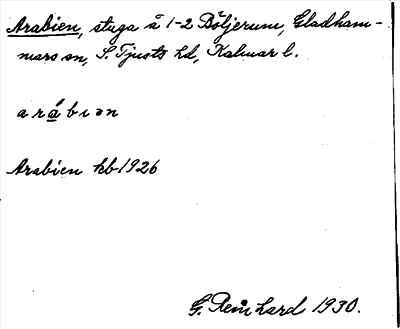 Arabien, stuga å 1-2 Böljerum, Gladham-
mars sn, S. Tjusts hd, Kalmar l.
arábıən
Arabien kb 1926
G. Reinhard 1930.